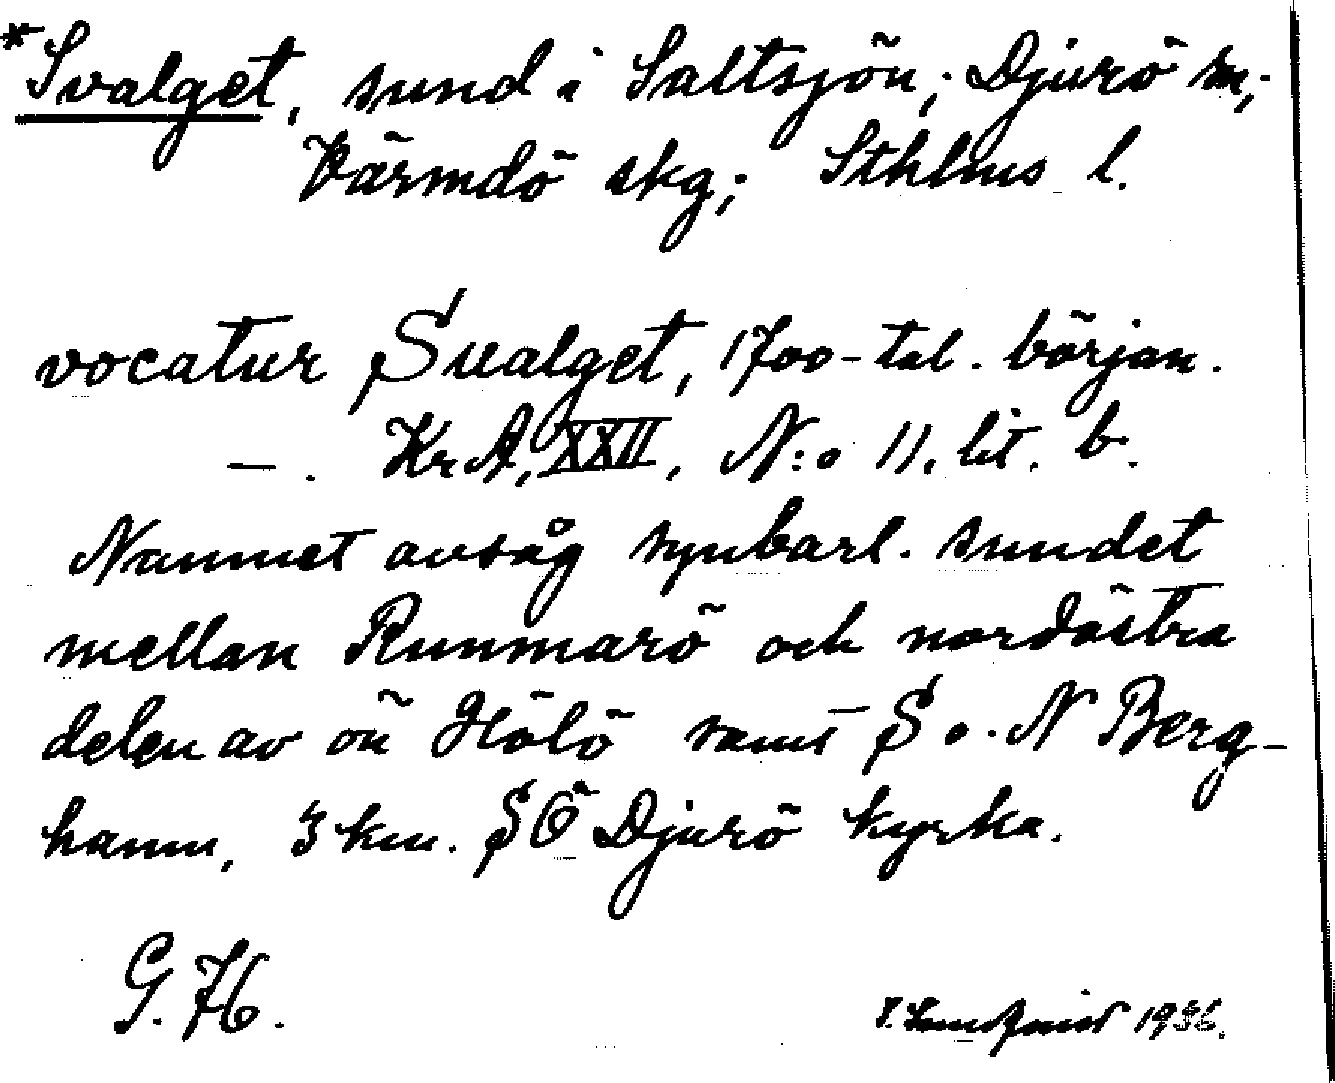 *Svalget, sund i Saltsjön; Djurö sn;
Värmdö skg; Sthlms l.
vocatur Sualget, 1700-tal. början.
—. KrA, XXII, N:o 11. lit. b.
Namnet avsåg synbarl. sundet
mellan Runmarö och nordöstra
delen av ön Hölö samt S o. N Berg-
hamn, 3 km. SÖ Djurö kyrka.
G. H.
1936.